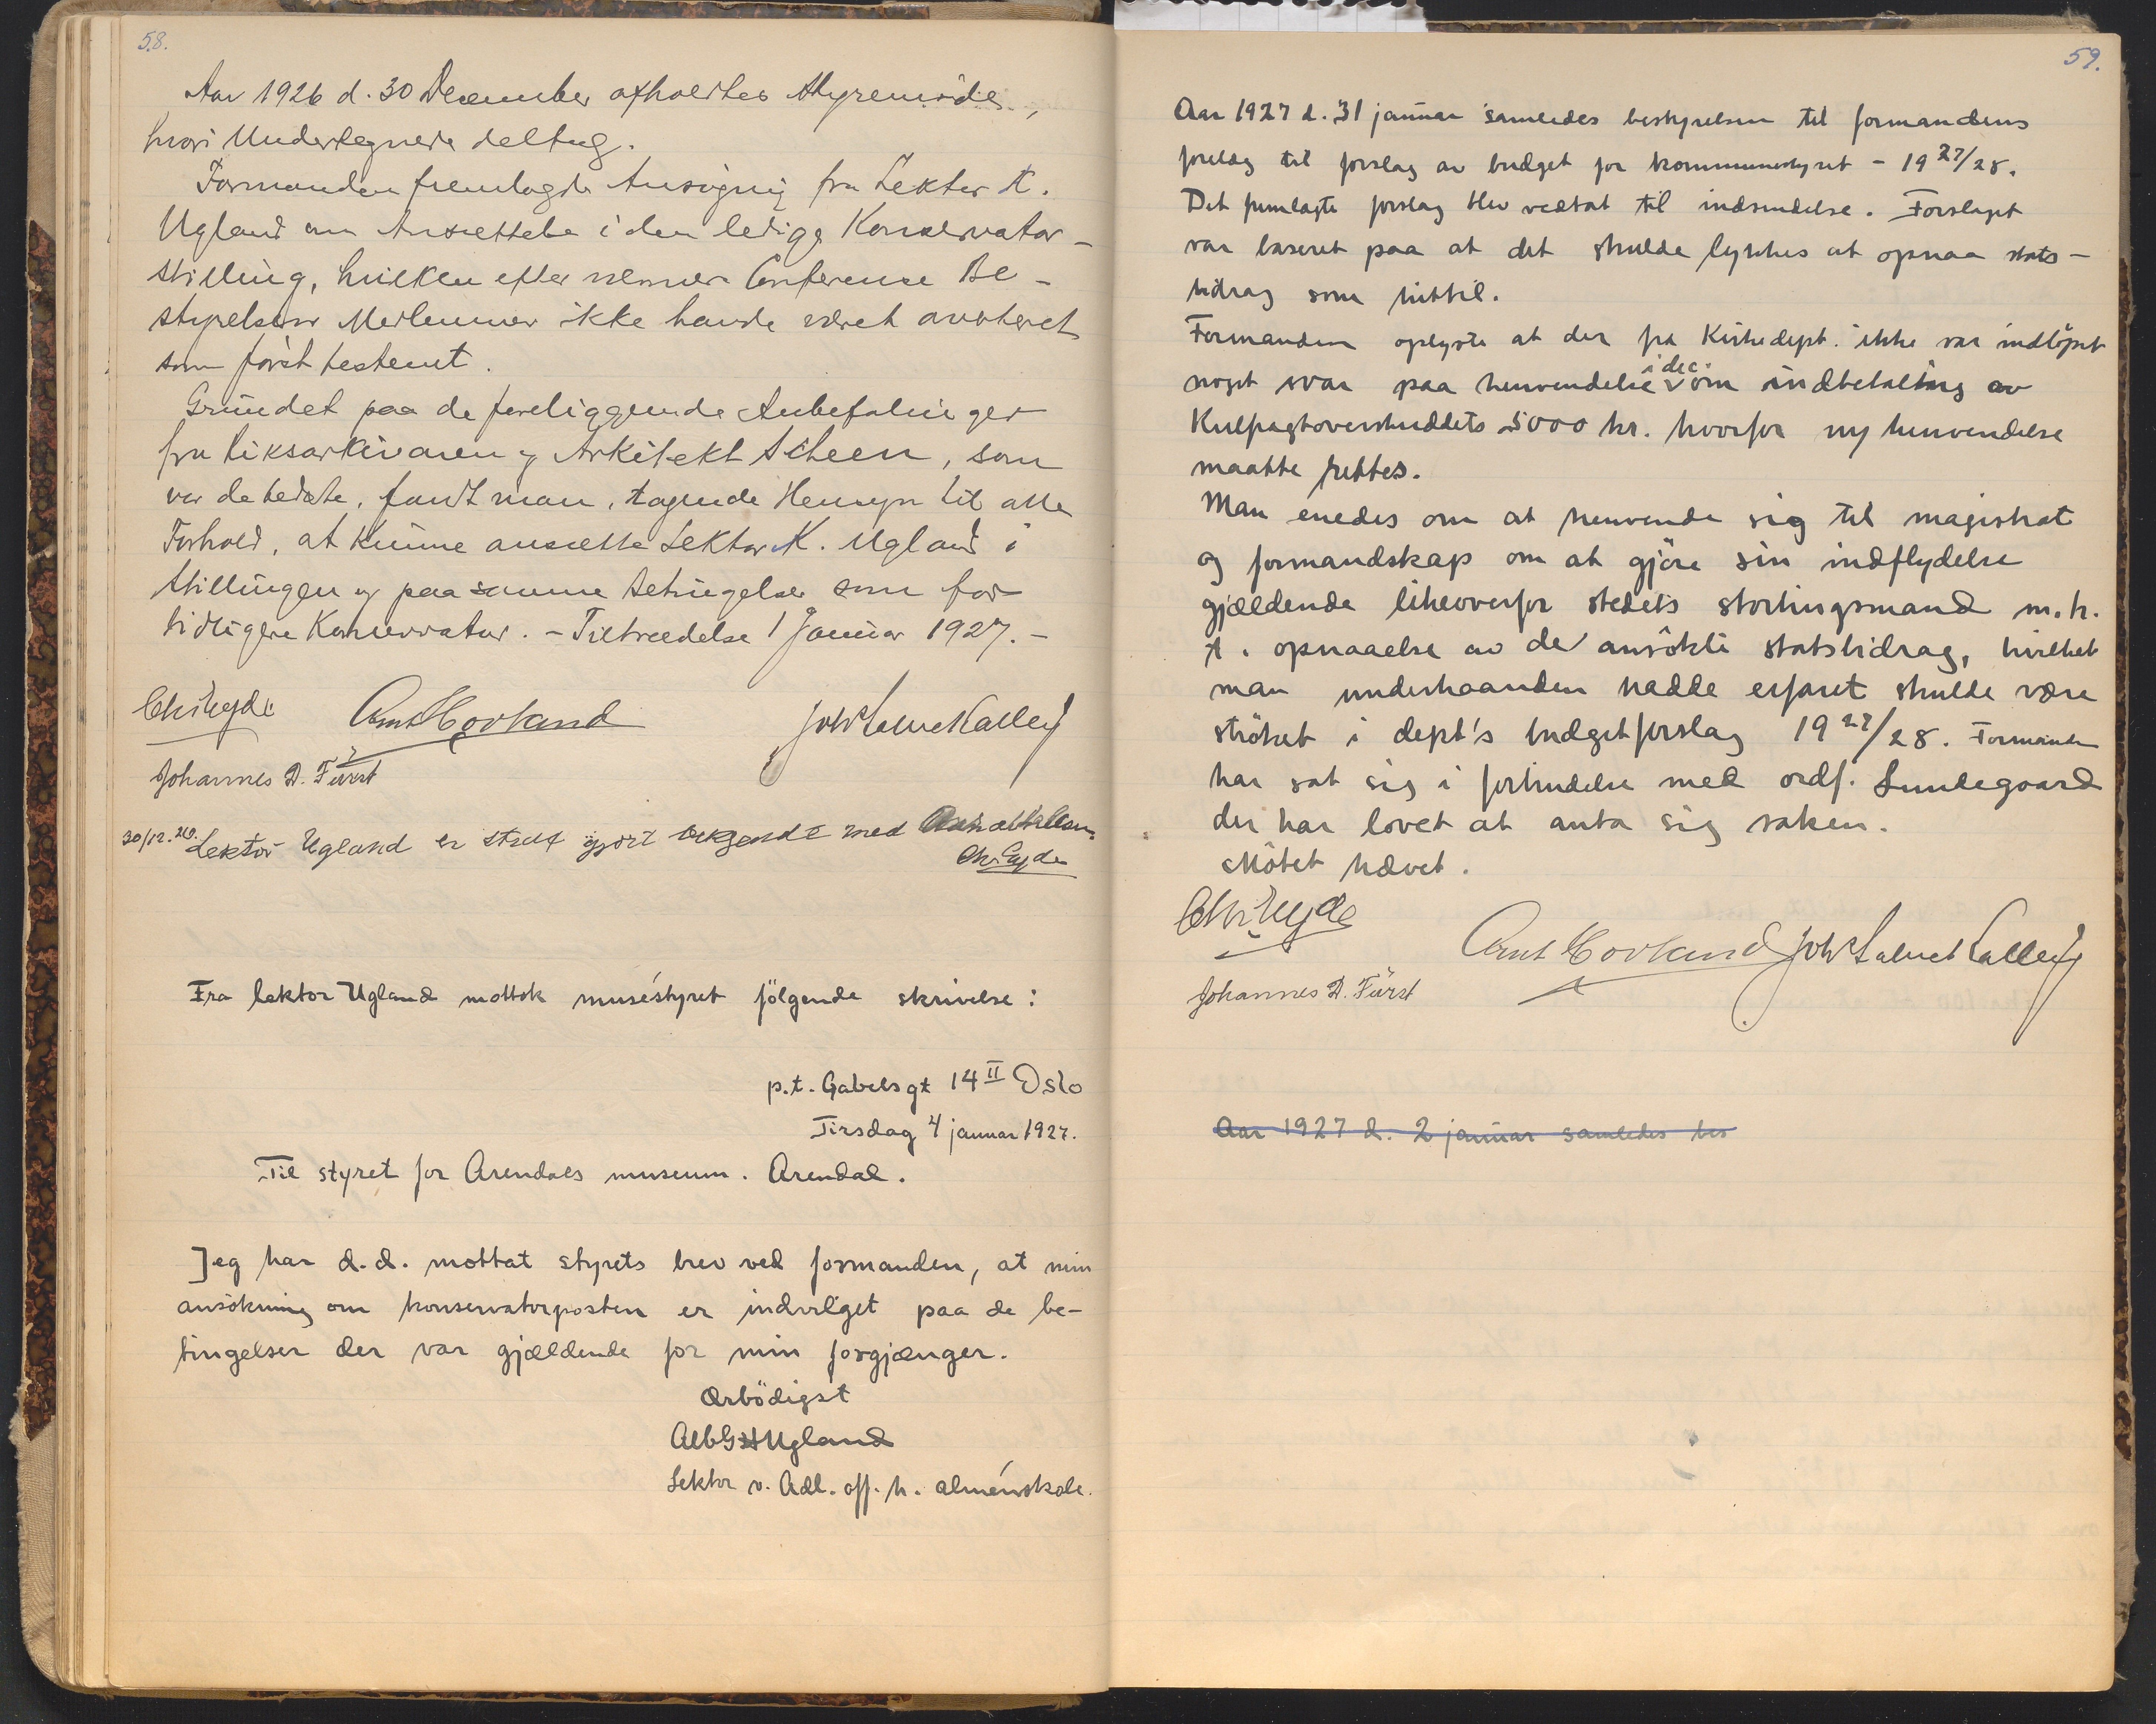 58.
Aar 1926 d. 30 December afholdtes Styremöde,
hvori Undertegnede deltog.
Formanden fremlagde Ansögnig fra Lektor K.
Ugland om Ansættelse i den ledige Konservator-
stilling, hvilken efter nærmere Conference Be-
styrelsens Medlemmer ikke havde været averteret
som först bestemt.
Grundet paa de foreliggende Anbefalinger
fra Riksarkivaren og Arkitekt Scheen, som
var de bedste, fandt man, tagende Hensyn til alle
Forhold, at kunne ansætte Lektor K. Ugland i
Stillingen og paa samme Betingelser som for
tidligere Konservator. - Tiltrædelse 1 Januar 1927. -
Chr Eyde Arnt Hovland Joh Salve Kalleij
Johannes D. Fürst
30/12.26. Lektor Ugland er strax gjort bekjendt med
Chr. Eyde
Fra lektor Ugland mottok muséstyret fölgende skrivelse:
p.t. Gabelsgt 14 II Oslo
Tirsdag 4 januar 1927.
Til styret for Arendals museum. Arendal.
Jeg har d.d. mottat styrets brev ved formanden, at min
ansökning om konservatorposten er indvilget paa de be-
tingelser der var gjældende for min forgjænger.
Ærbödigst
Ugland
Lektor v. Adl. off. h. alménskole.
59.
Aar 1927 d. 31 januar samledes bestyrelsen til formandens
forelæg til forslag av budget for kommunestyret - 19 27/28.
Det fremlagte forslag blev vedtat til indsendelse. Forslaget
var baseret paa at det skulde lykkes at opnaa stats-
bidrag som hittil.
Formanden oplyste at der fra Kirkedept. ikke var indlöpet
noget svar paa henvendelse i dec. om indbetaling av
Kulfragtoverskuddets 5000 kr. hvorfor ny henvendelse
maatte rettes.
Man enedes om at henvende sig til magistrat
og formandskap om at gjöre sin indflydelse
gjældende likeoverfor stedets stortingsmand m.h.
t. opnaaelse av de ansökte statsbidrag, hvilket
man underhaanden hadde erfaret skulde være
ströket i dept's budgetforslag 19 27/28. Formanden
har sat sig i forbindelse med ordf. Lundegaard
der har lovet at anta sig saken.
Mötet hævet.
Chr. Eyde
Arnt Hovland Joh Salve Kalleij
Johannes D. Fürst
Aar 1927 d. 2 januar samledes bes